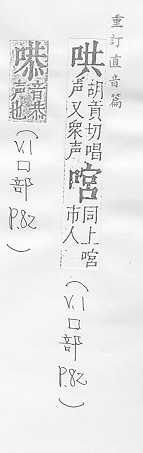 重訂直音篇
哄 胡貢切唱
声又衆声
同上
市人
(V.1 口部 P.82)
音恭
声也
(V.1 口部 P.82)